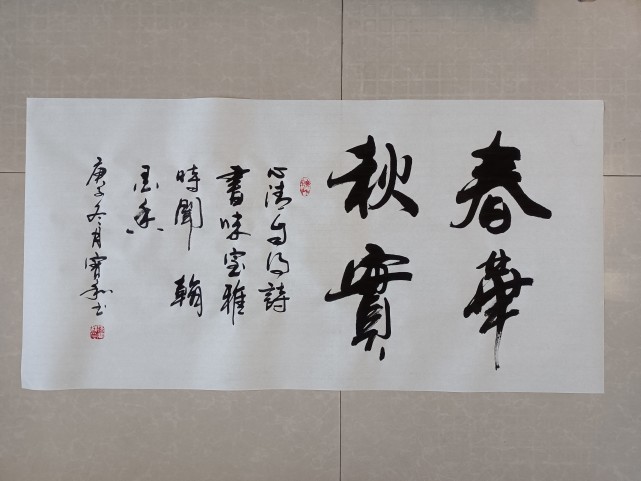 春華
秋實
心清自得詩
書味室雅
時聞翰
墨香
庚子冬月寶和書